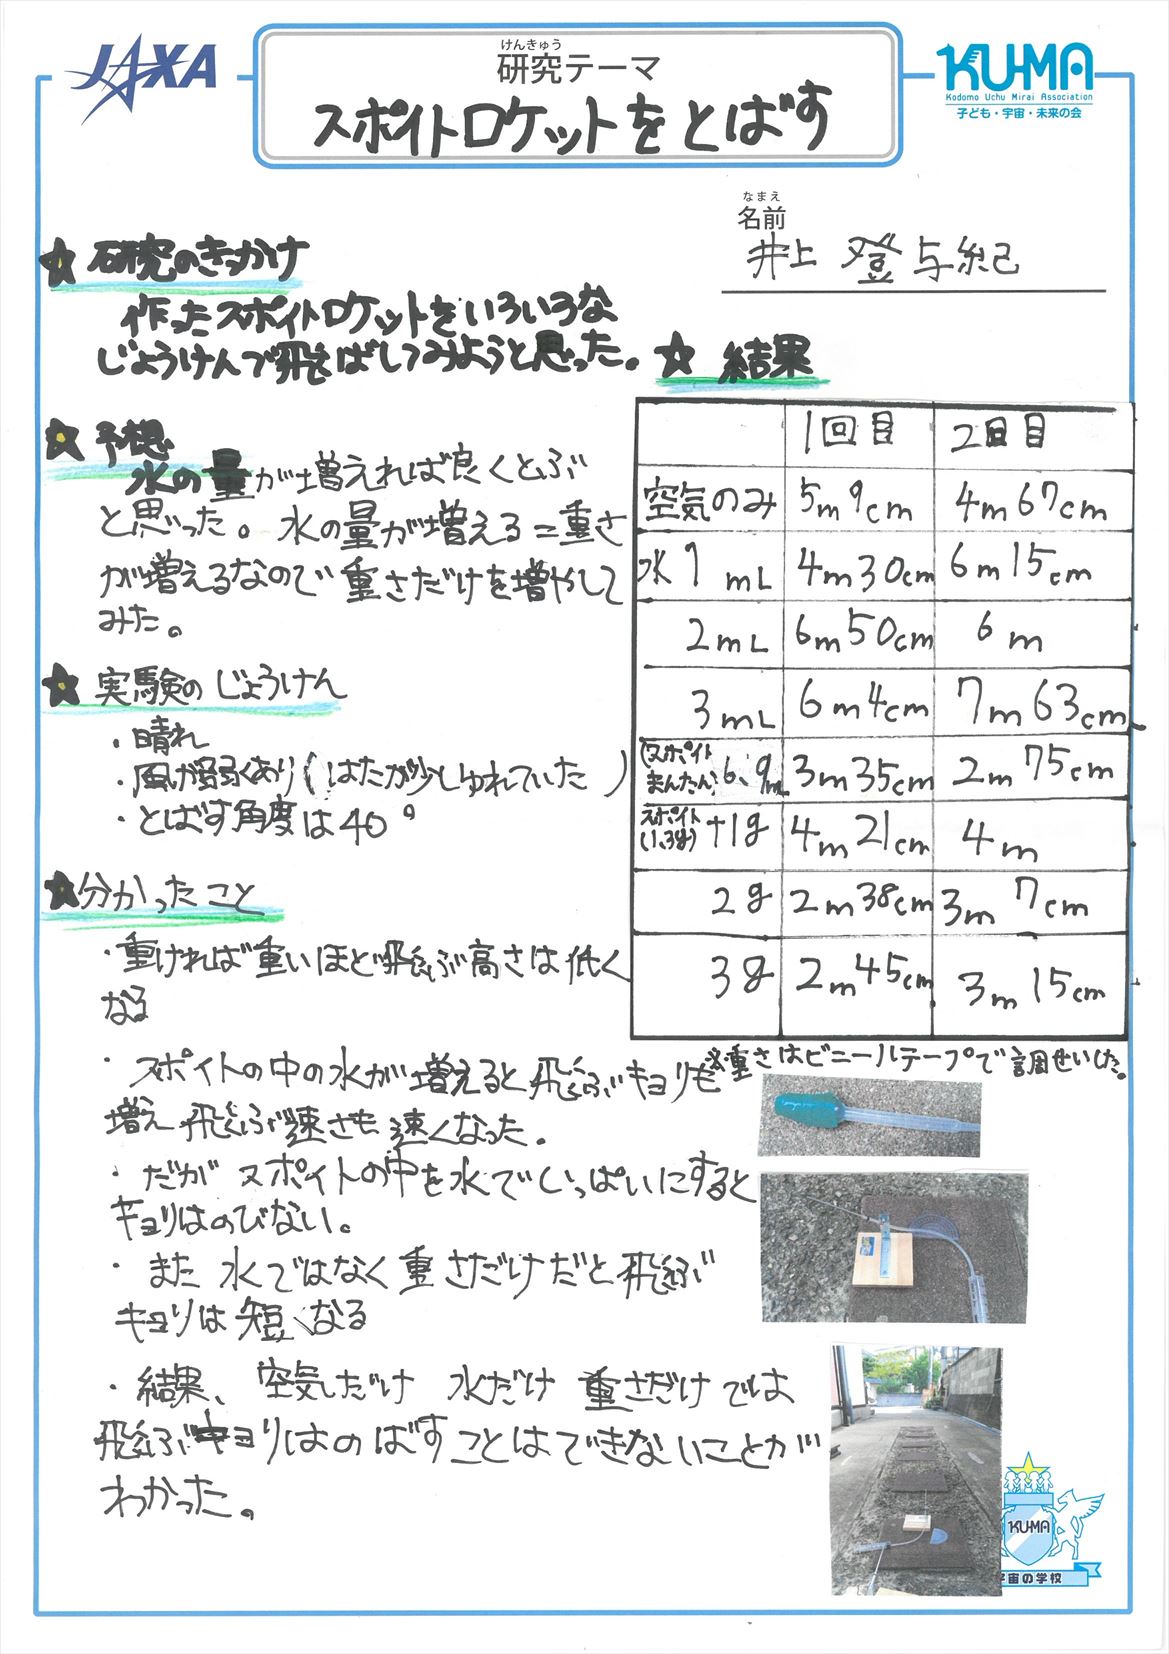 JAXA
けんきゅう
研究テーマ
スポイトロケットをとばす
KU-MA
Kodomo Uchu Mirai Association
子ども・宇宙・未来の会
なまえ
名前
井上 登与紀
★ 研究のきっかけ
作ったスポイトロケットをいろいろな
じょうけんで飛ばしてみようと思った。
★ 予想
水の量が増えれば良くとぶ
と思った。水の量が増える=重さ
が増えるなので重さだけを増やして
みた。
★ 実験のじょうけん
・晴れ
・風が弱くあり(はたが少しゆれていた)
・とばす角度は40°
★分かったこと
・重ければ重いほど飛ぶ高さは低く
なる
・スポイトの中の水が増えると飛ぶキョリも
増え飛ぶ速さも速くなった。
・だがスポイトの中を水でいっぱいにすると
キョリはのびない。
・また水ではなく重さだけだと飛ぶ
キョリは短くなる
・結果、空気だけ 水だけ 重さだけでは
飛ぶキョリはのばすことはできないことが
わかった。
☆ 結果
1回目 2回目
空気のみ 5m9cm 4m67cm
水1mL 4m30cm 6m15cm
2mL 6m50cm 6m
3mL 6m4cm 7m63cm
(スポイトまんたん)6.9mL 3m35cm 2m75cm
スポイト(1.3g)+1g 4m21cm 4m
2g 2m38cm 3m7cm
3g 2m45cm 3m15cm
※重さはビニールテープで調せいした。
KU-MA
宇宙の学校